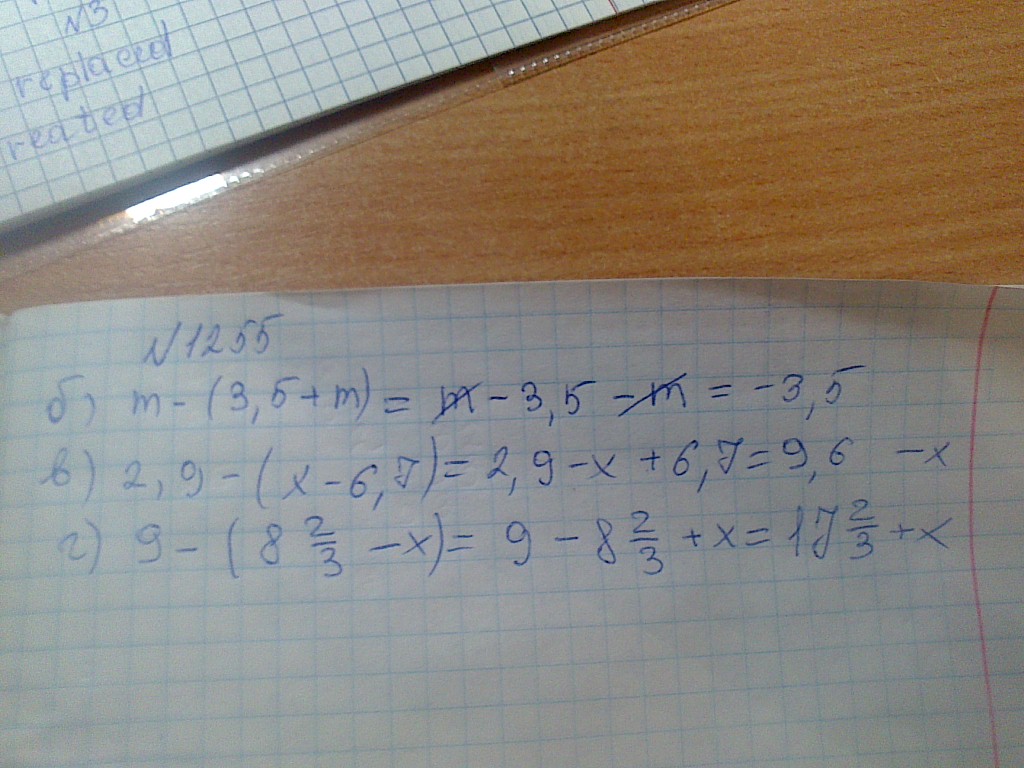 №3
replaced
reated
№1255
б) m - (3,5 + m) = m - 3,5 - m = -3,5
в) 2,9 - (x - 6,7) = 2,9 - x + 6,7 = 9,6 - x
г) 9 - (8 2/3 - x) = 9 - 8 2/3 + x = 17 2/3 + x